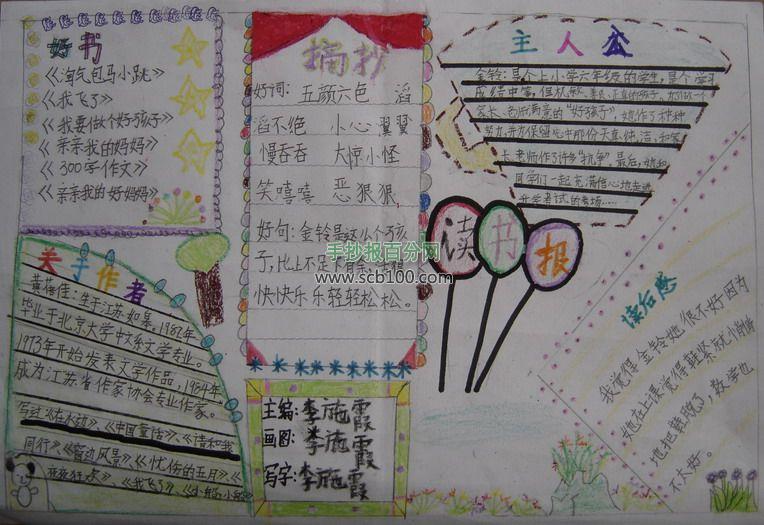 好书
《淘气包马小跳》
《我飞了》
《我要做个好孩子》
《亲亲我的妈妈》
《300字作文》
《亲亲我的好妈妈》
摘抄
好词：五颜六色 滔
滔不绝 小心翼翼
慢吞吞 大惊小怪
笑嘻嘻 恶狠狠
好句：金铃是这小个孩
子，比上不足下有余，活得
快快乐乐轻轻松松。
手抄报百分网
www.scb100.com
主人公
金铃：是个上小学六年级的学生，是个学习
成绩中等，但机敏
家长、老师满意的“好孩子”，她作了种种
努力，并为保留心中那份天真、纯洁、和家
长老师作了许多“抗争”最后，她和
同学们一起充满信心地走进
升学考试的考场……
读书报
关于作者
黄蓓佳：生于江苏如皋，1982年
毕业于北京大学中文系文学专业。
1973年开始发表文学作品，1984年
成为江苏省作家协会专业作家。
写过《在水边》、《中国童话》、《请和我
同行》、《窗边风景》、《忧伤的五月》、《
《我飞了》、
主编：李施霞
画图：李施霞
写字：李施霞
读后感
我觉得金铃她很不好因为
她在上课觉得鞋紧就悄悄
地把鞋脱了，数学也
不太好。